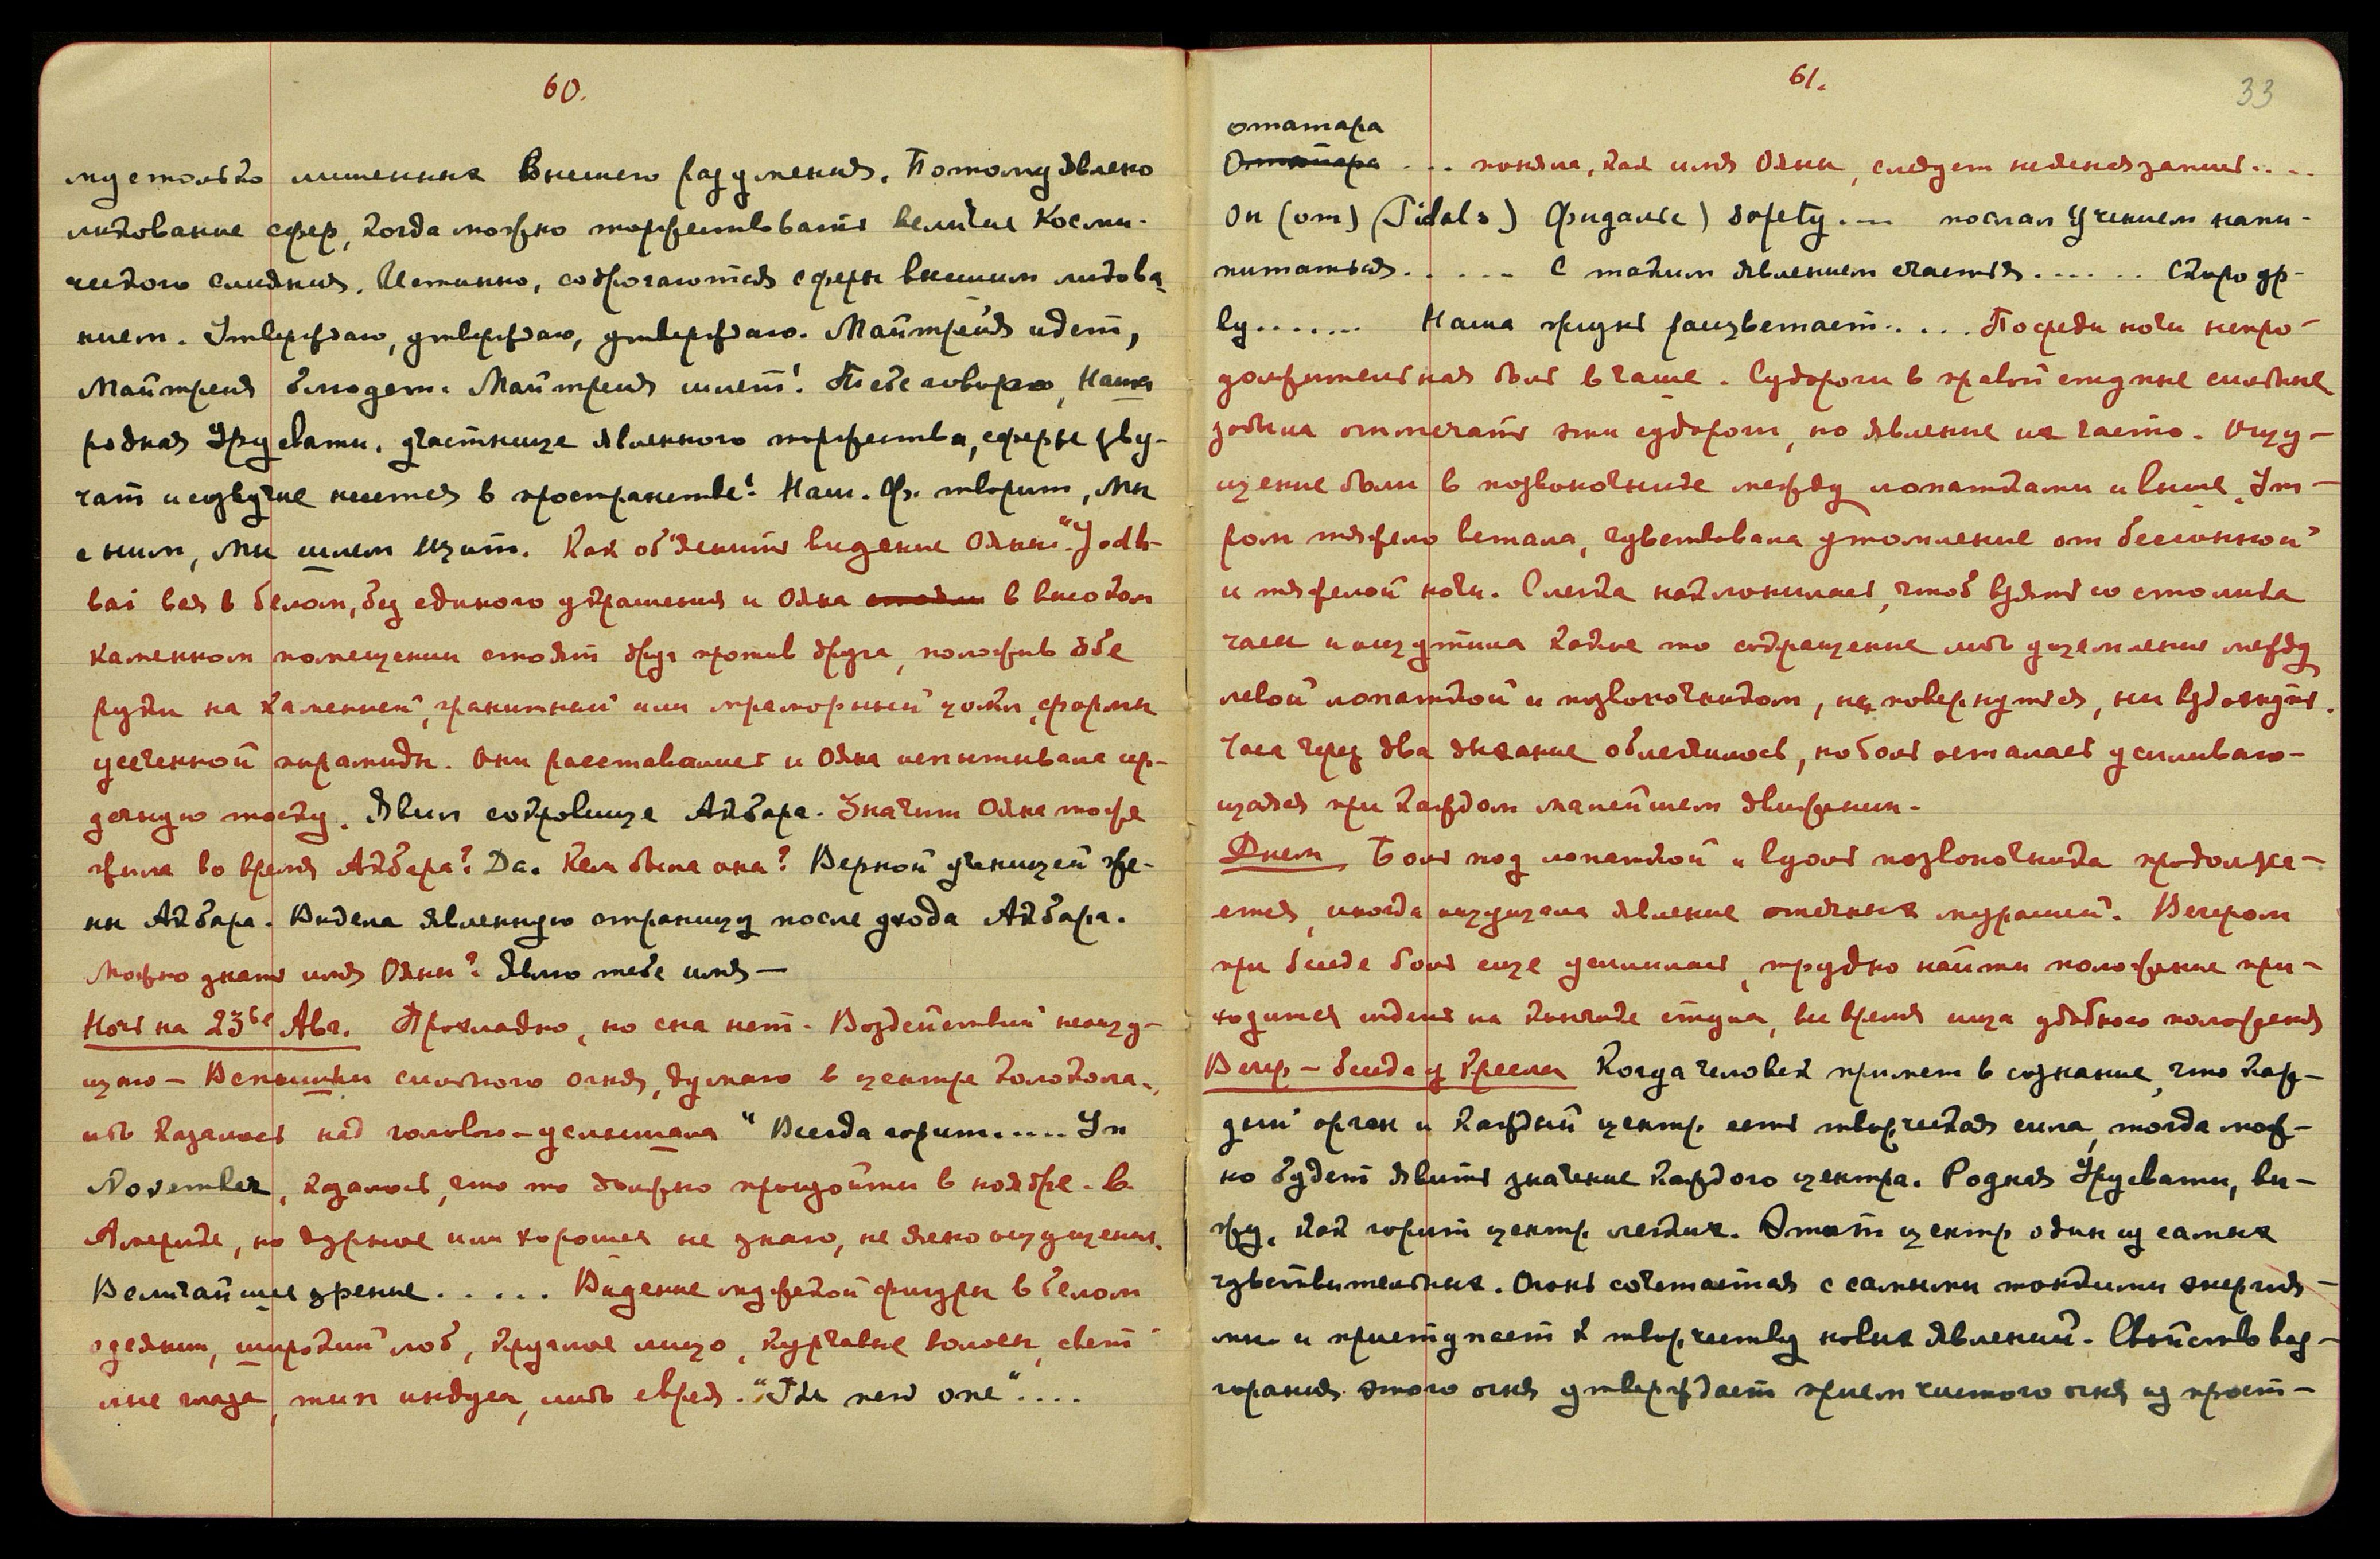 60.
мустолько лишенных Внешнего разумения. Потому явлено
ликование сфер, когда можно торжествовать величие Косми-
ческого слияния. Истинно, содрогаются сферы высшим ликова-
нием. Утверждаю, утверждаю, утверждаю. Майтрейя идет,
Майтрейя блюдет. Майтрейя шлет! Тебе говорю, Наша
родная Урусвати. участнице явленного торжества, сферы зву-
чат и созвучие несется в пространстве! Наш. Ф. творит, Мы
с ним, Мы шлем щит. Как об'яснить видение Ояны "Jodh-
bai вся в белом, без единого украшения и Ояна в высоком
каменном помещении стоят друг против друга, положив обе
руки на каменный, гранитный или мраморный цоколь, формы
усеченной пирамиды. Они расставались и Ояна испытывала сер-
дечную тоску. Явил сокровище Акбара. Значит Ояна тоже
жила во время Акбара? Да. Кем была она? Верной ученицей же-
ны Акбара. Видела явленную страницу после ухода Акбара.
Можно знать имя Ояны? Явлю тебе имя —
Ночь на 23ье Авг. Прохладно, но сна нет. Воздействий неощу-
щаю — Вспышки сильного огня, думаю в центре колокола,
иль казалось над головою — услышала "Всегда горит..... In
November, казалось, что то должно произойти в ноябре. в
Америке, но дурное или хорошее не знаю, не ясно ощущение.
Величайшее зрение..... Видение мужской фигуры в белом
одеянии, широкий лоб, круглое лицо, курчавые волосы, свет-
лые глаза, тип индуса, иль еврея. "The new one"....
61.
33
отатара
... поняла, как имя Ояны, следует недосказанное....
Он (от) (Fidals) Фидальс) safety.... послан Учением напи-
питаться..... С таким явлением счастья...... Скоро др-
ву....... Наша жизнь расцветает..... Посреди ночи непро-
должительная боль в чаше. Судороги в правой ступне сильные
забыла отмечать эти судороги, но явление их часто. Ощу-
щение боли в позвоночнике между лопатками и выше. Ут-
ром тяжело встала, чувствовала утомление от бессонной
и тяжелой ночи. Слегка наклонилась, чтоб взять со столика
часы и ощутила какое то сокращение иль ущемление между
левой лопаткой и позвоночником, не повернуться, ни вздохнуть.
Часа через два дыхание облегчилось, но боль осталась усиливаю-
щаяся при каждом малейшем движении.
Днем Боль под лопаткой и вдоль позвоночника продолжа-
ется, иногда ощущала явление мурашей. Вечером
при беседе боль еще усилилась, трудно найти положение при-
ходится сидеть на кончике стула, все время ища удобного положения
Вечер — беседа у Кресла Когда человек примет в сознание, что каж-
дый орган и каждый центр есть творческая сила, тогда мож-
но будет явить значение каждого центра. Родная Урусвати, ви-
жу, как горит центр легких. Этот центр один из самых
чувствительных. Огонь сочетается с самыми тонкими энергия-
ми. и приступает к творчеству новых явлений. Свойство воз-
горания этого огня утверждает прием чистого огня из прост-